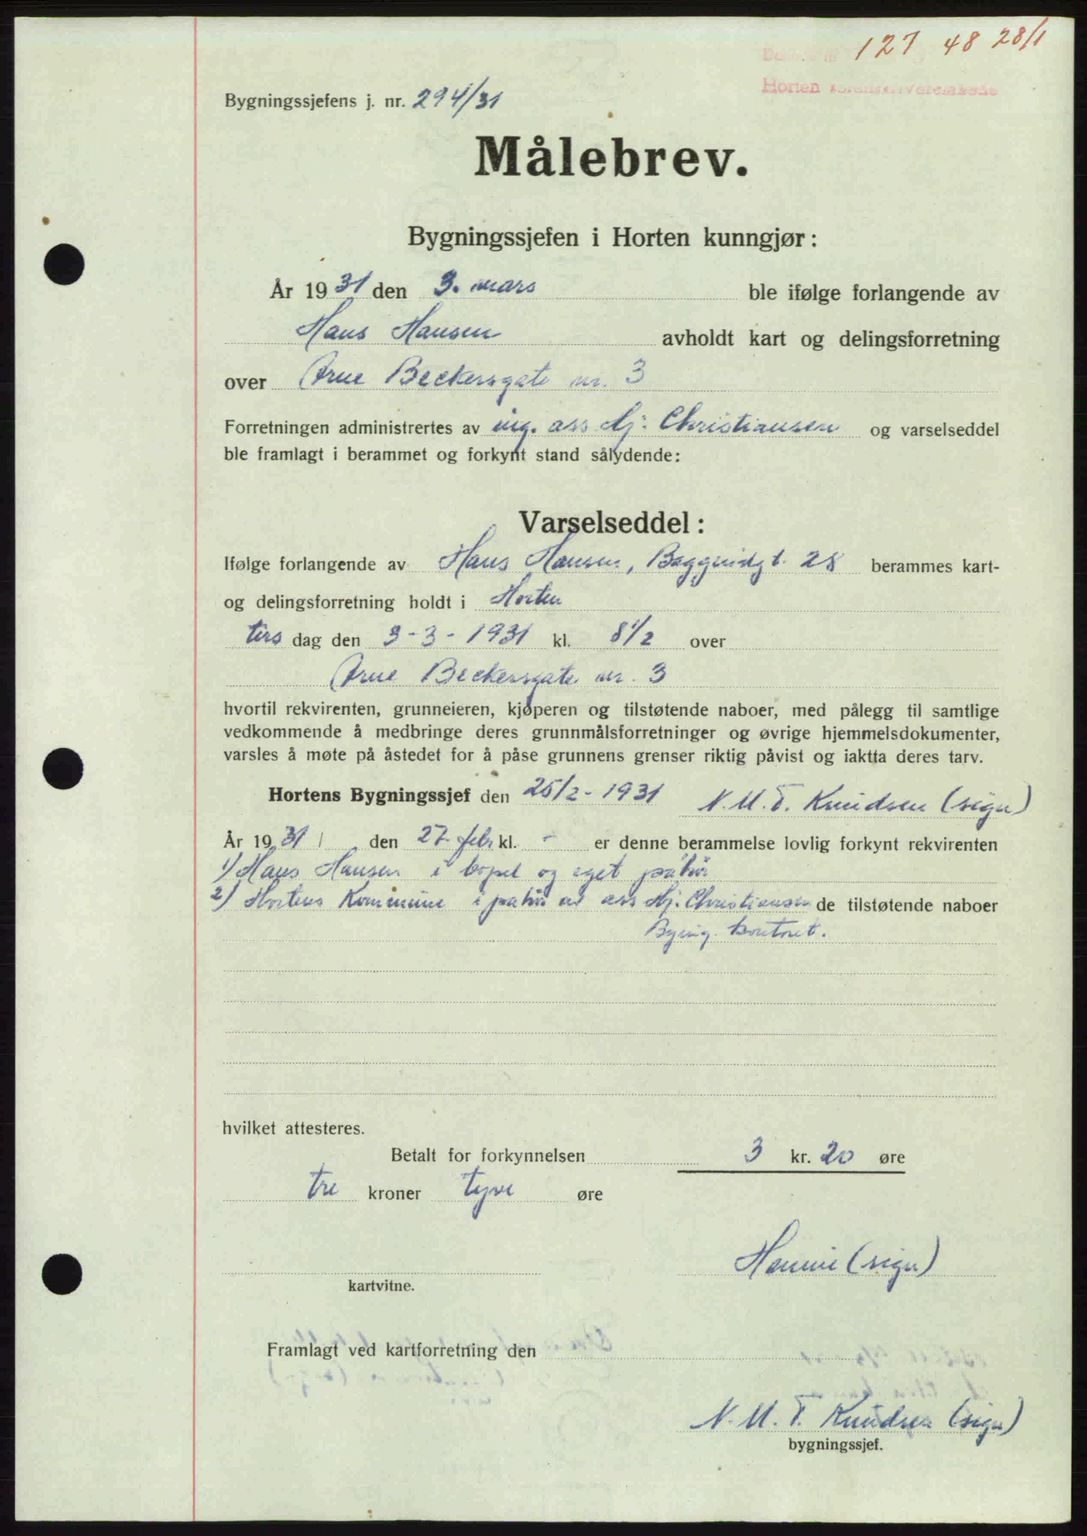 127 48 28/1
Horten
Bygningssjefens j. nr. 294/31
Målebrev.
Bygningssjefen i Horten kunngjør:
År 1931 den 3. mars ble ifølge forlangende av
Hans Hansen avholdt kart og delingsforretning
over Arne Beckersgate nr. 3
Forretningen administrertes av ing. ass Hj. Christiansen og varselseddel
ble framlagt i berammet og forkynt stand sålydende:
Varselseddel:
Ifølge forlangende av Hans Hansen, 28 berammes kart-
og delingsforretning holdt i Horten
tirs dag den 3-3-1931 kl. 8 1/2 over
Arne Beckersgate nr. 3
hvortil rekvirenten, grunneieren, kjøperen og tilstøtende naboer, med pålegg til samtlige
vedkommende å medbringe deres grunnmålsforretninger og øvrige hjemmelsdokumenter,
varsles å møte på åstedet for å påse grunnens grenser riktig påvist og iaktta deres tarv.
Hortens Bygningssjef den 25/2-1931 N. M. T. Knudsen (sign)
År 1931 den 27. febr kl. - er denne berammelse lovlig forkynt rekvirenten
1) Hans Hansen i bopel og eget påhør
2) Hortens Kommune i påhør av ass Hj. Christiansen de tilstøtende naboer
Bygnig. kontoret.
hvilket attesteres.
Betalt for forkynnelsen 3 kr. 20 øre
tre kroner tyve øre
(sign)
kartvitne.
Framlagt ved kartforretning den
N. M. T. Knudsen (sign)
bygningssjef.